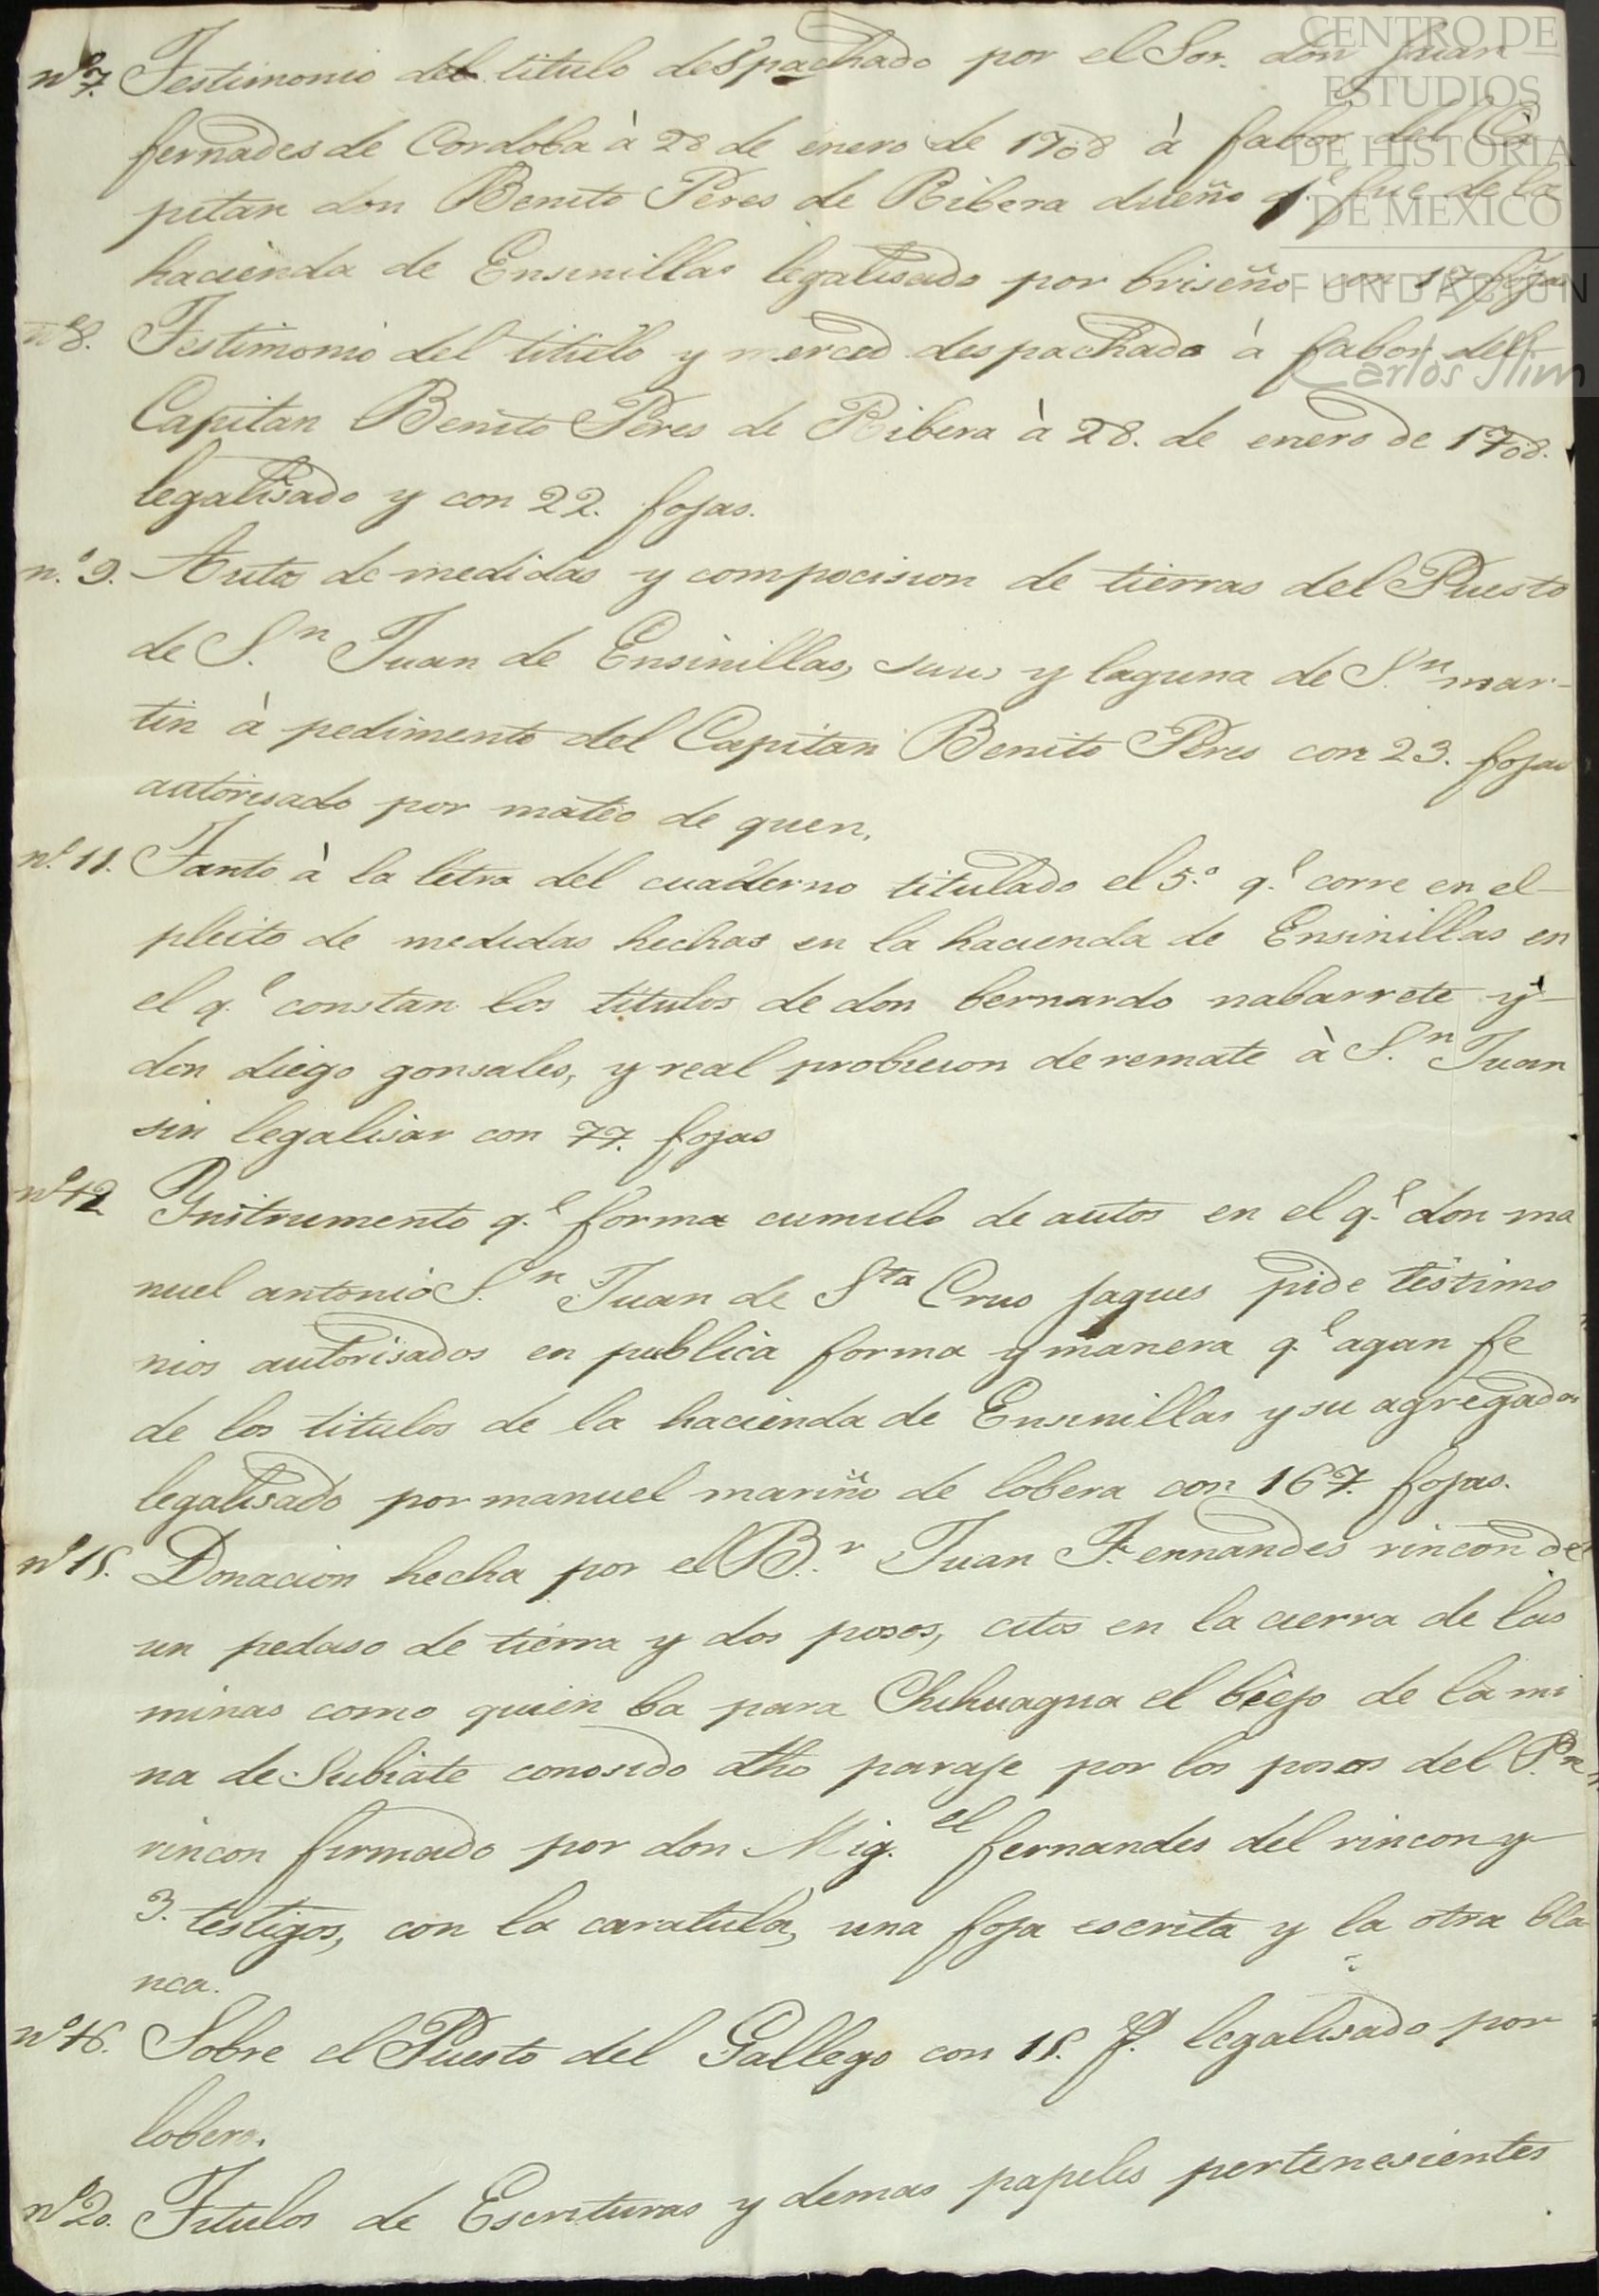 CENTRO DE
ESTUDIOS
DE HISTORIA
DE MEXICO
FUNDACIÓN
Carlos Slim
nº 7. Testimonio del titulo despachado por el Sor. don Juan
fernades de Cordoba à 28 de enero de 1708 à fabor del Ca
pitan don Benito Peres de Ribera dueño q.e fue de la
hacienda de Ensinillas legalisado por briseño con 17 fojas
nº 8. Testimonio del titulo y merced despachado à fabor del
Capitan Benito Peres de Ribera à 28. de enero de 1708.
legalisado y con 22. fojas.
n.º 9. Autos de medidas y compocision de tierras del Puesto
de S.n Juan de Ensinillas, y laguna de S.n mar-
tin à pedimento del Capitan Benito Peres con 23. fojas
autorisado por mateo de quen.
nº 11. Tanto à la letra del cuaderno titulado el 5.º q.e corre en el
pleito de medidas hechas en la hacienda de Ensinillas en
el q.e constan los titulos de don bernardo nabarrete y
don diego gonsales, y real probicion de remate à S.n Juan
sin legalisar con 77. fojas
nº 12 Ynstrumento q.e forma cumulo de autos en el q.e don ma
nuel antonio S.n Juan de Sta Crus jaques pide testimo
nios autorisados en publica forma y manera q.e agan fe
de los titulos de la hacienda de Ensinillas y su agregados
legalisado por manuel mariño de lobera con 167. fojas.
nº 15. Donacion hecha por el B.r Juan Fernandes rincon de
un pedaso de tierra y dos posos, citos en la cierra de las
minas como quien ba para Chihuagua el biejo de la mi
na de Subiate conosido dho paraje por los posos del P.e
rincon firmado por don Mig.el fernandes del rincon y
3. testigos, con la caratula, una foja escrita y la otra bla-
nca.
nº 16. Sobre el Puesto del Gallego con 15. f.s legalisado por
lobera.
nº 20. Titulos de Escrituras y demas papeles pertenesientes